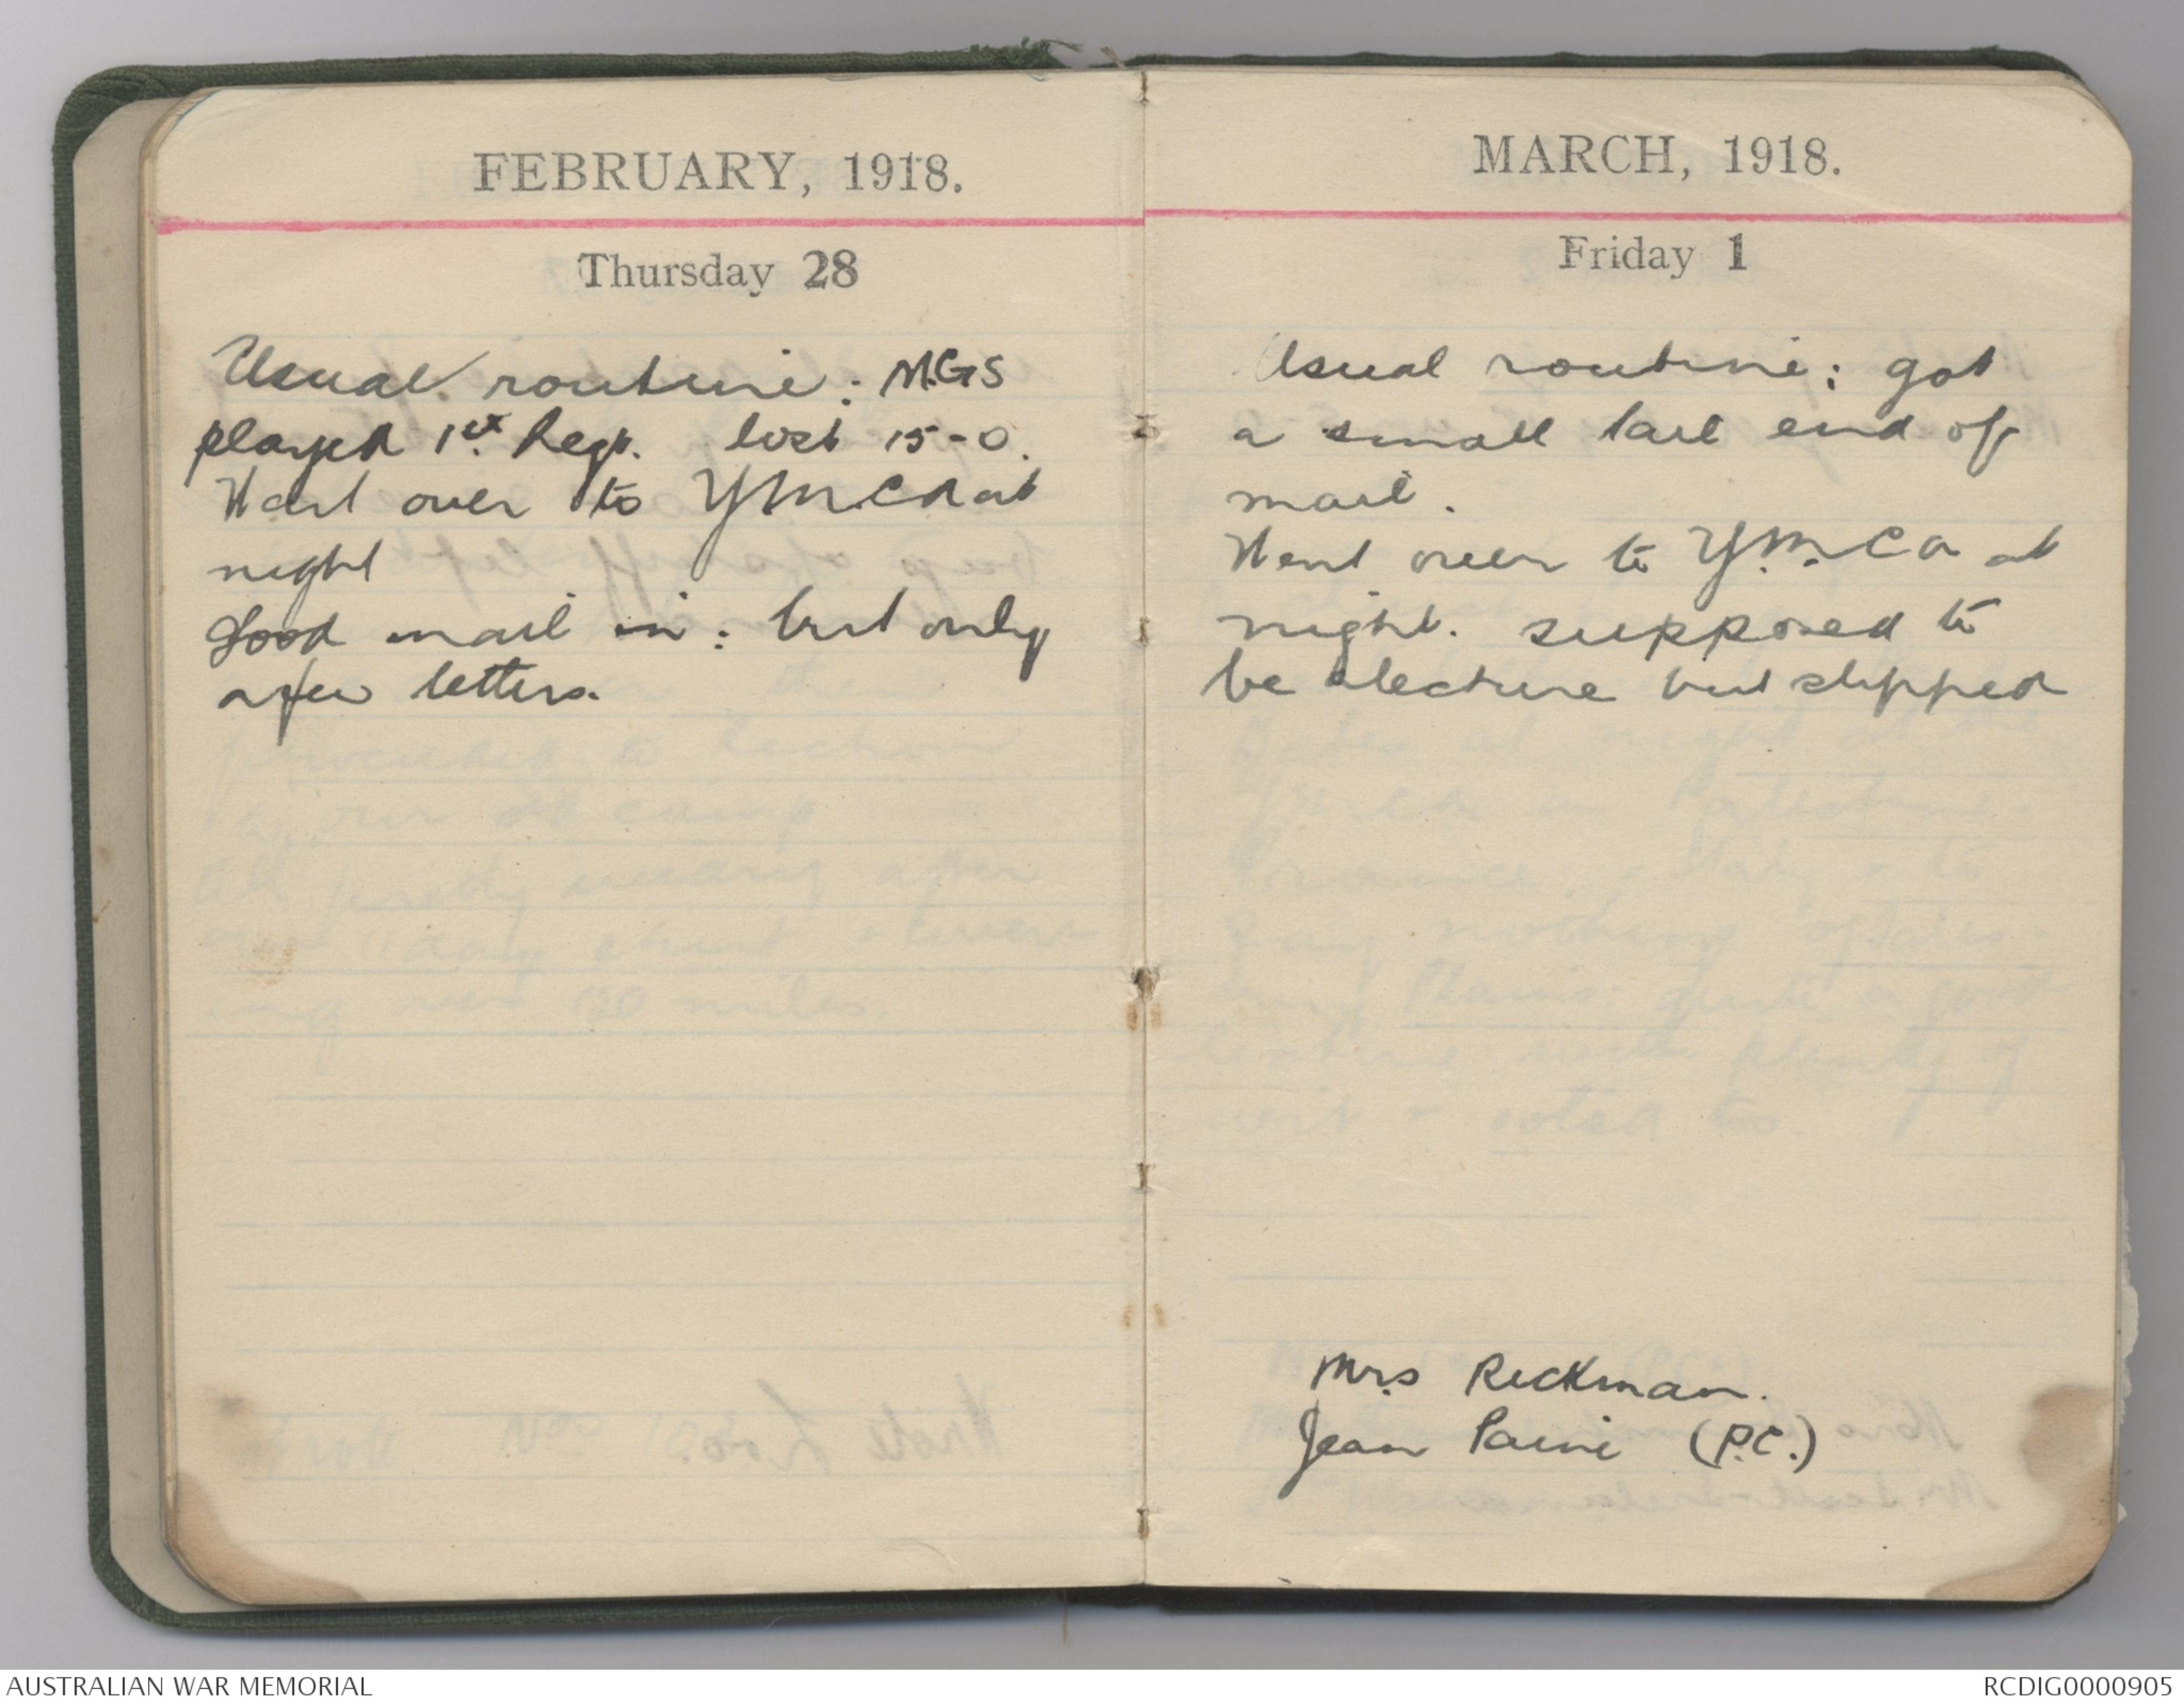 FEBRUARY, 1918.
Thursday 28
Usual routine: M.G.S
played 1st Regt. lost 15-0.
Went over to Y.M.C.A at
night
Good mail in: but only
a few letters.
MARCH, 1918.
Friday 1
Usual routine; got
a small tail end of
mail.
Went over to Y.M.C.A at
night. supposed to
be a lecture but slipped
Mrs Rickman.
Jean Paine (P.C.)
AUSTRALIAN WAR MEMORIAL
RCDIG0000905